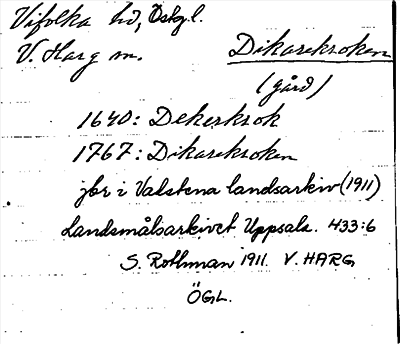 Vifolka hd, Östgl.
V. Harg sn.
Dikarekroken
(gård)
1640: Dekerkrok
1767: Dikarekroken
jbr i Vadstena landsarkiv (1911)
Landsmålsarkivet Uppsala. 433:6
S. Rothman 1911. V. HARG
ÖGL.